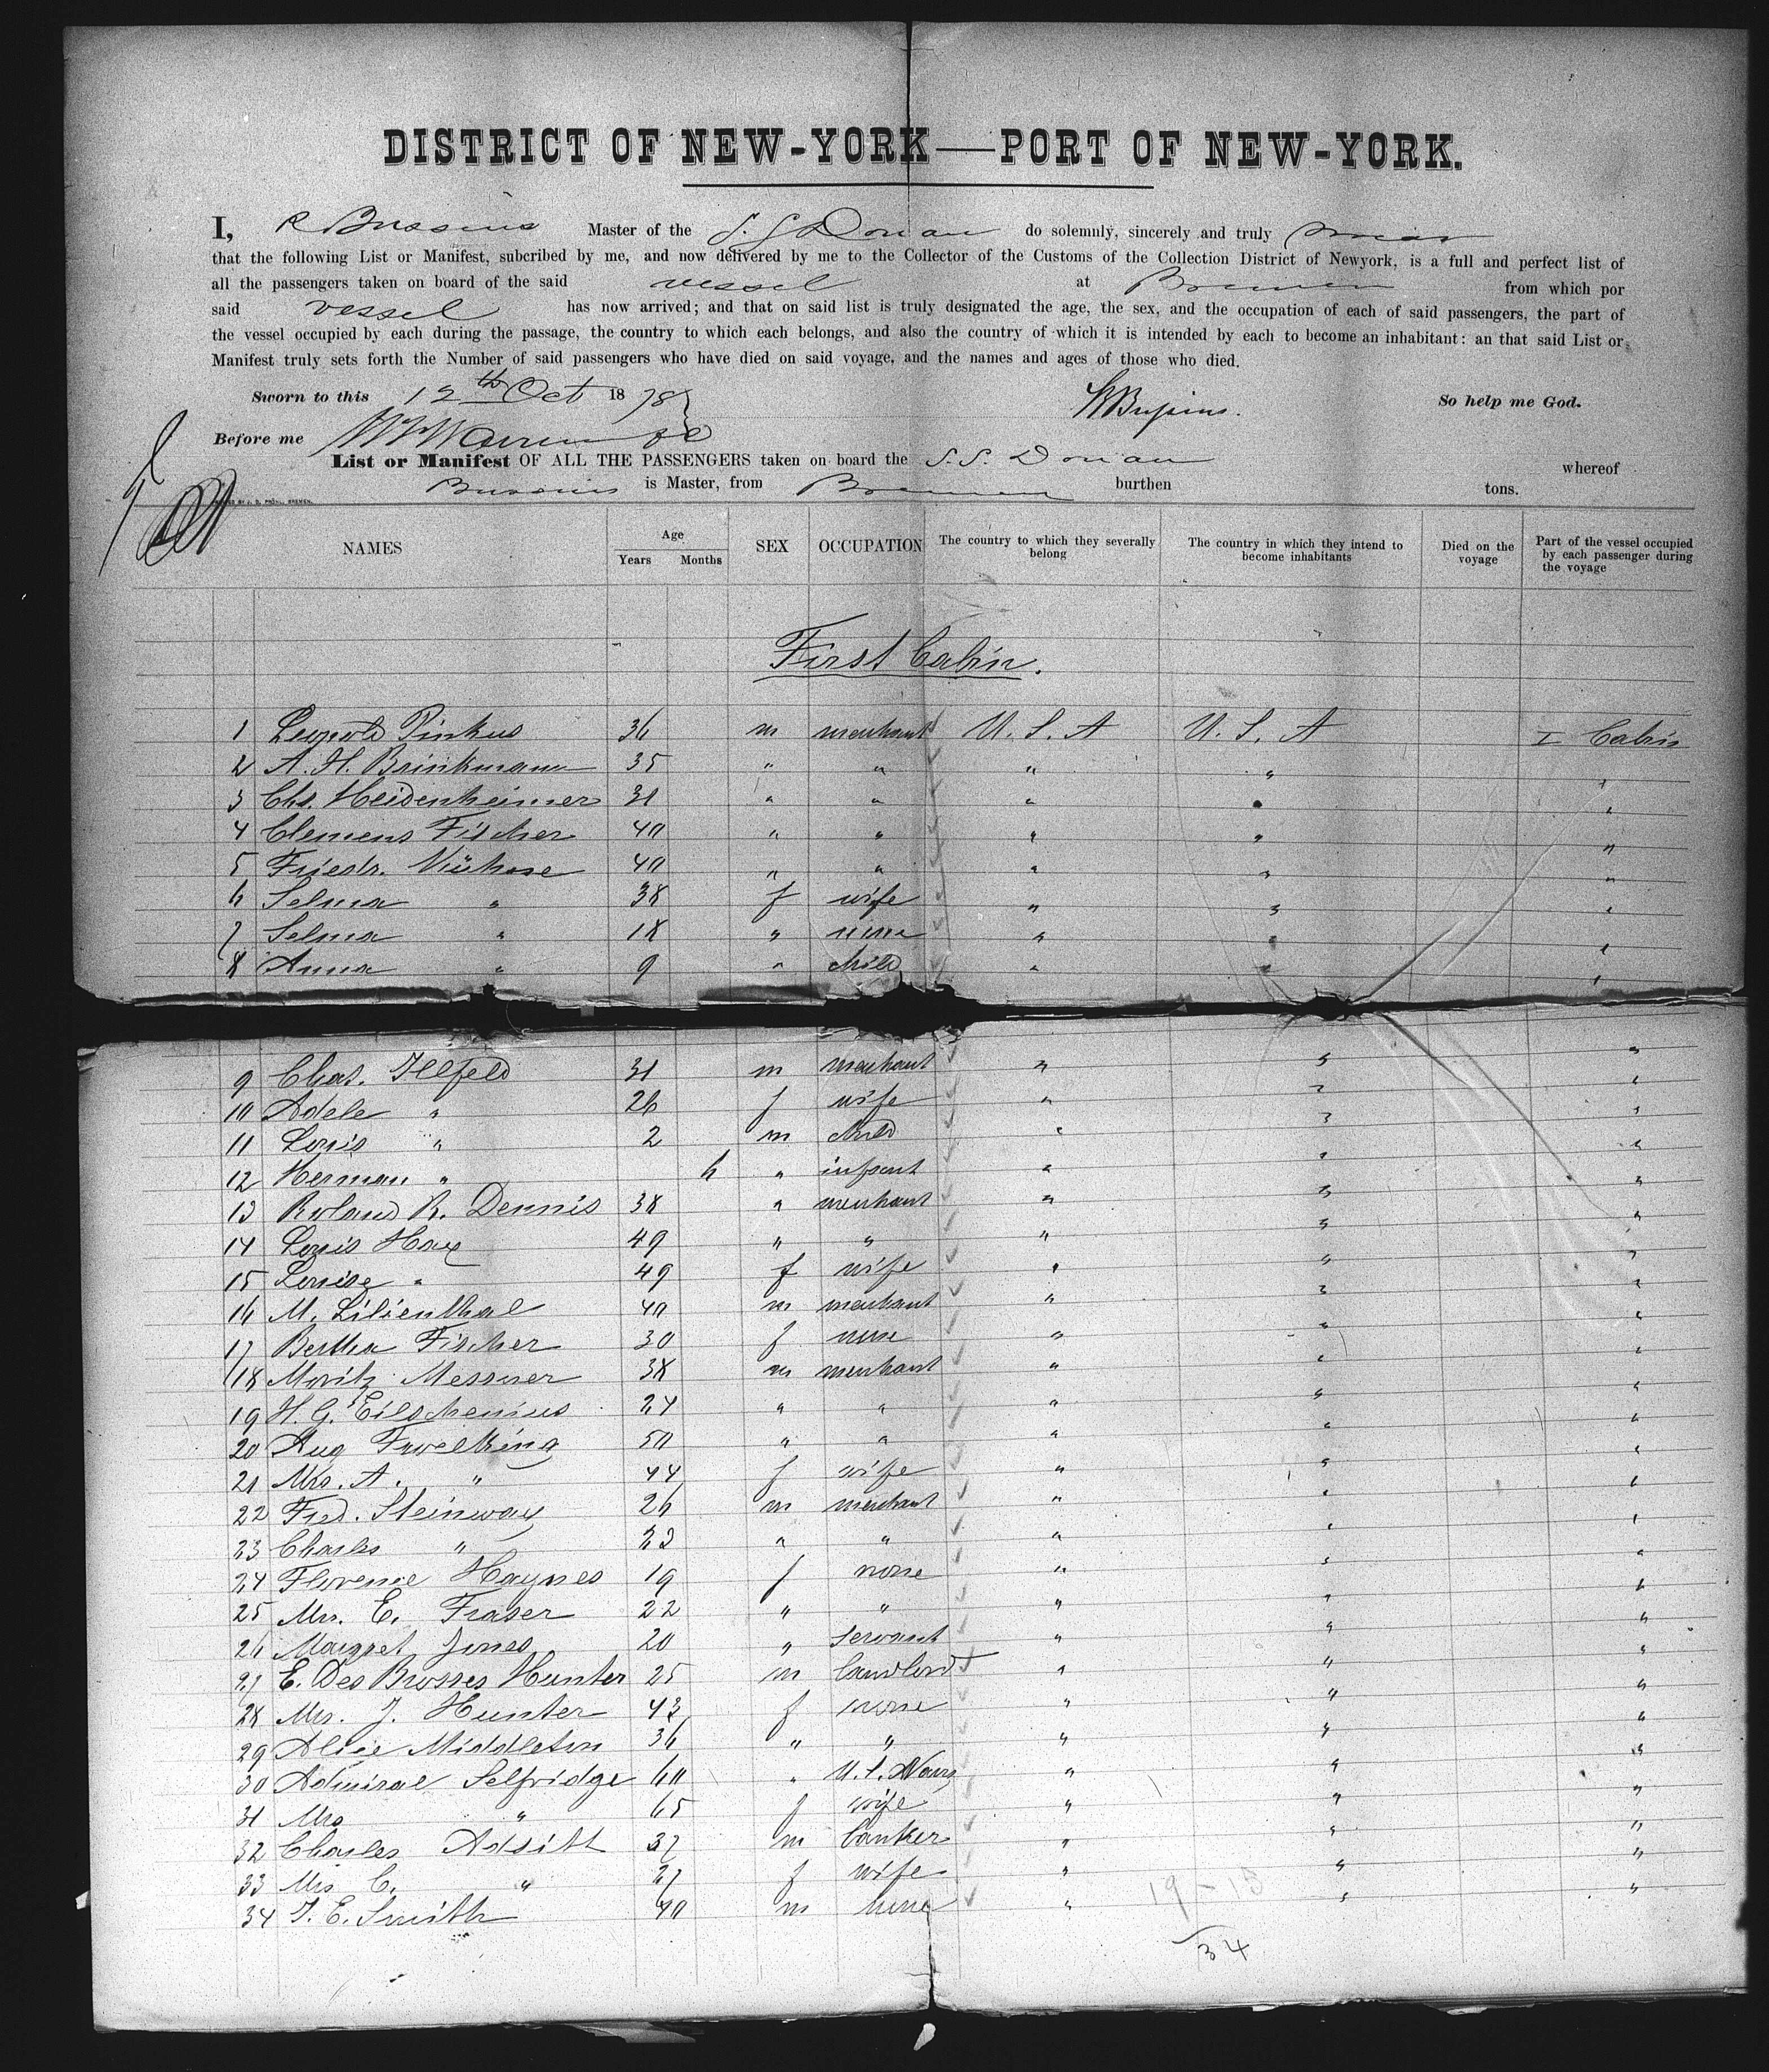 DISTRICT OF NEW-YORK—PORT OF NEW-YORK.
I, R Bussius Master of the S. S. Donau do solemnly, sincerely and truly swear
that the following List or Manifest, subcribed by me, and now delivered by me to the Collector of the Customs of the Collection District of Newyork, is a full and perfect list of
all the passengers taken on board of the said vessel at Bremen from which por
said vessel has now arrived; and that on said list is truly designated the age, the sex, and the occupation of each of said passengers, the part of
the vessel occupied by each during the passage, the country to which each belongs, and also the country of which it is intended by each to become an inhabitant: an that said List or
Manifest truly sets forth the Number of said passengers who have died on said voyage, and the names and ages of those who died.
Sworn to this 12th Oct 1878 So help me God.
Before me
List or Manifest OF ALL THE PASSENGERS taken on board the S. S. Donau whereof
Bussius is Master, from Bremen burthen tons.
NAMES Age Years Months SEX OCCUPATION The country to which they severally belong The country in which they intend to become inhabitants Died on the voyage Part of the vessel occupied by each passenger during the voyage
First Cabin.
1 Leopold Pinkus 36 m merchant U. S. A U. S. A I Cabin
2 A. H. Brinkmann 35 " " " " "
3 Chs. Heidenheimer 31 " " " " "
4 Clemens Fischer 40 " " " " "
5 Friedr. 40 " " " " "
6 Selma " 38 f wife " " "
7 Selma " 18 " none " " "
8 Anna " 9 " child " " "
9 Chas. Ilfeld 31 m merchant " " "
10 Adele " 26 f wife " " "
11 Louis " 2 m child " " "
12 Herman " 6 " infant " " "
13 Roland R. Dennis 38 " merchant " " "
14 Louis Hax 49 " " " " "
15 Louise " 49 f wife " " "
16 M. Lilienthal 40 m merchant " " "
17 Bertha Fischer 30 f none " " "
18 Moritz Messner 38 m merchant " " "
19 H. G. Eilschemius 24 " " " " "
20 Aug 50 " " " " "
21 Mrs. A. " 44 f wife " " "
22 Fred. Steinway 26 m merchant " " "
23 Charles " 22 " " " " "
24 Florence Haynes 19 f none " " "
25 Mrs. E. Fraser 22 " " " " "
26 Margret Jones 20 " servant " " "
27 E. Des Brosses Hunter 25 m landlord " " "
28 Mrs. J. Hunter 43 f none " " "
29 Alice Middleton 36 " " " " "
30 Admiral Selfridge 60 " U. S. Navy " " "
31 Mrs " 65 f wife " " "
32 Charles Adsitt 37 m banker " " "
33 Mrs C. " 27 f wife " " "
34 T. E. Smith 40 m none " " "
19 - 15
34